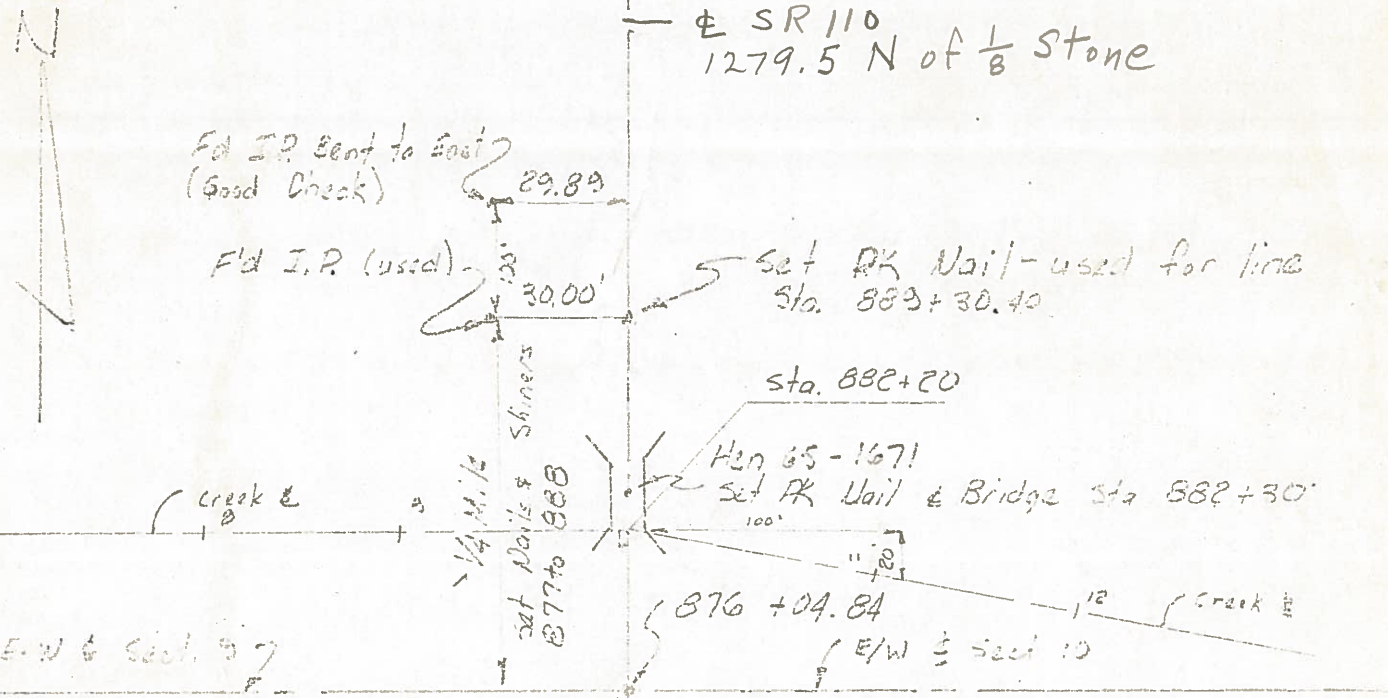 N
℄ SR 110
1279.5 N of 1/8 Stone
F'd I.P. Bent to East
(Good Check)
29.89
F'd I.P. (used)
30.00'
Set PK Nail - used for line
Sta. 889+30.40
Sta. 882+20
Hen 65-1671
Set PK Nail ℄ Bridge Sta 882+30
100'
creek ℄
8
9
1/4 Mile
Set Nails & Shiners
877 to 888
11
20
12
Creek ℄
876 +04.84
E/W ℄ Sect. 9
E/W ℄ Sect 10